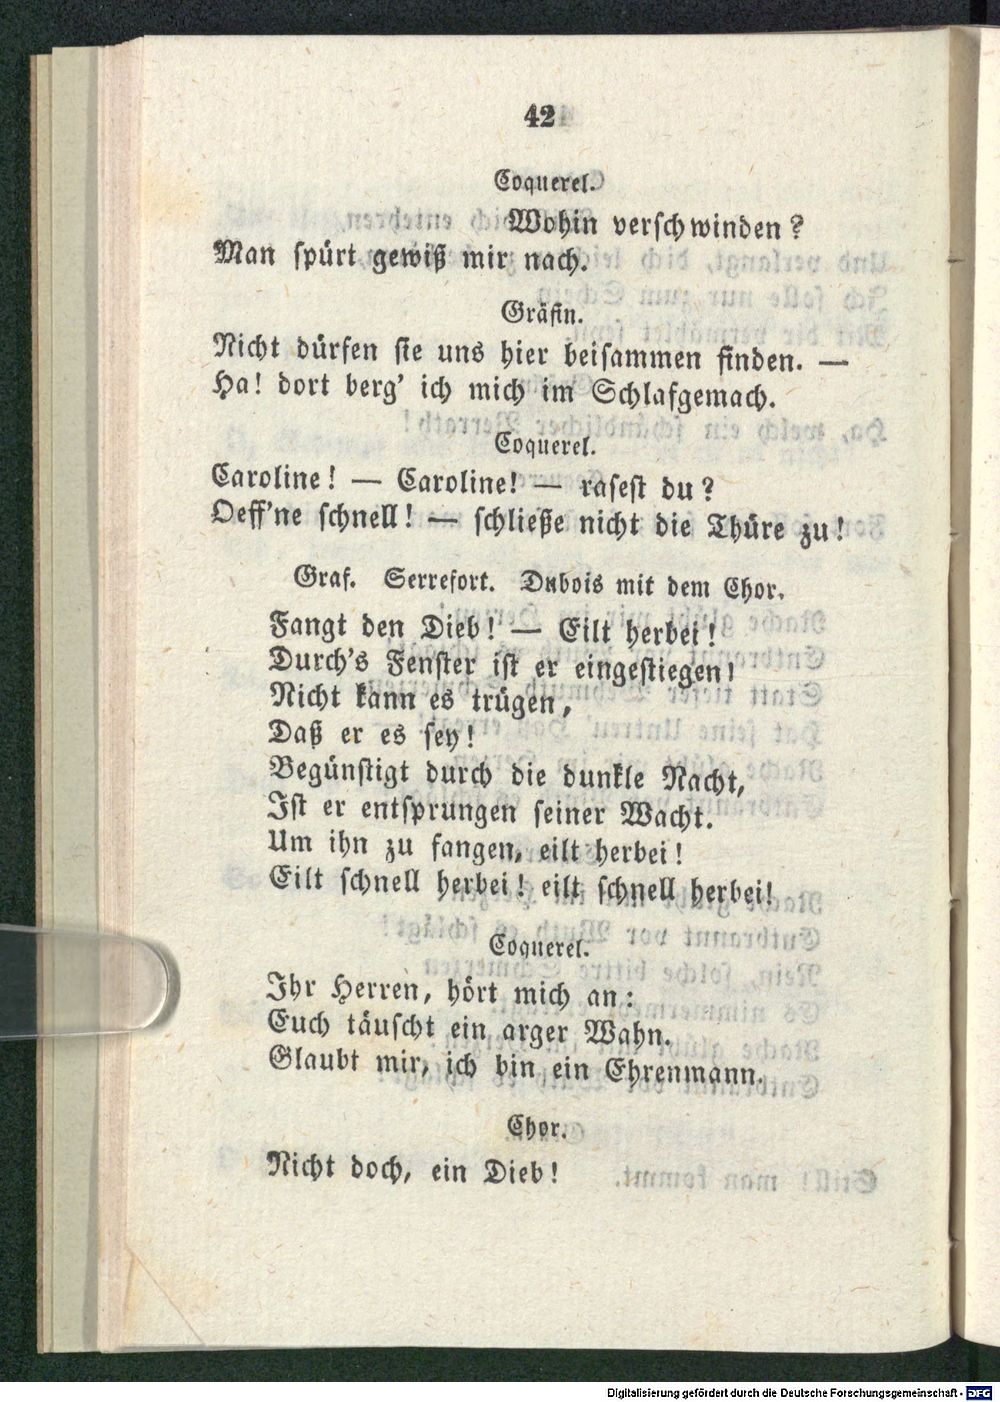 42
Coquerel.
Wohin verschwinden?
Man spürt gewiß mir nach.
Gräfin.
Nicht dürfen sie uns hier beisammen finden. —
Ha! dort berg' ich mich im Schlafgemach.
Coquerel.
Caroline! — Caroline! — rasest du?
Oeff'ne schnell! — schließe nicht die Thüre zu!
Graf. Serrefort. Dubois mit dem Chor.
Fangt den Dieb! — Eilt herbei!
Durch's Fenster ist er eingestiegen!
Nicht kann es trügen,
Daß er es sey!
Begünstigt durch die dunkle Nacht,
Ist er entsprungen seiner Wacht.
Um ihn zu fangen, eilt herbei!
Eilt schnell herbei! eilt schnell herbei!
Coquerel.
Ihr Herren, hört mich an:
Euch täuscht ein arger Wahn.
Glaubt mir, ich bin ein Ehrenmann.
Chor.
Nicht doch, ein Dieb!
Digitalisierung gefördert durch die Deutsche Forschungsgemeinschaft - DFG